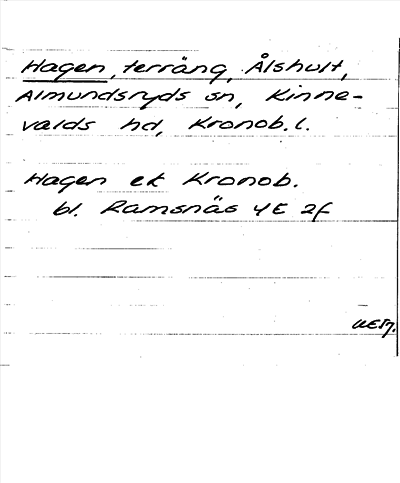 Hagen, terräng, Ålshult,
Almundsryds sn, Kinne-
valds hd, Kronob. l.
Hagen ek Kronob.
bl. Ramsnäs 4E 2f